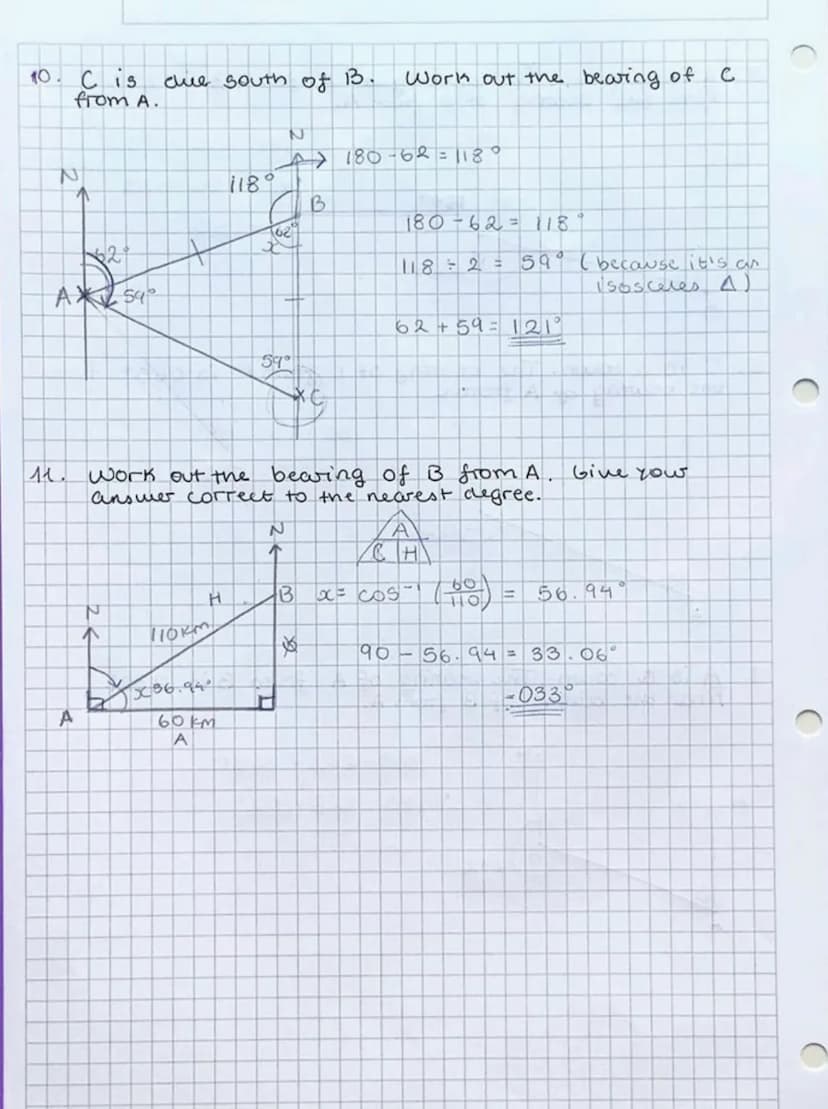 10. C is due south of B. Work out the bearing of C
from A.
N
180 - 62 = 118°
N
118°
B
62°
x
180 - 62 = 118°
62°
118 ÷ 2 = 59° (because it's an
isosceles Δ)
A
59°
62 + 59 = 121°
59°
C
11. Work out the bearing of B from A. Give your
answer correct to the nearest degree.
N
A
C H
H
B
x = cos⁻¹ (60/110) = 56.94°
N
110km
90 - 56.94 = 33.06°
x 56.94°
= 033°
A
60 km
A